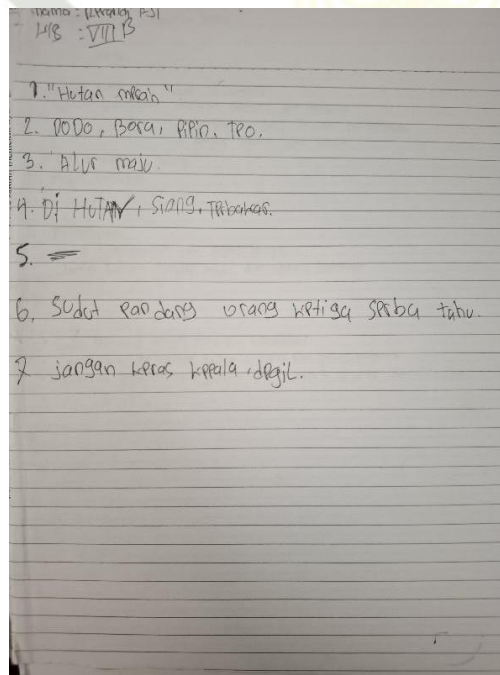 Nama :
: VIII B
1. "Hutan
2. DODO, Bora, Pipin, Teo.
3. Alur maju.
4. Di HUTAN, Siang, Terbakar.
5.
6. Sudut pandang orang ketiga serba tahu.
7 jangan keras kepala, degil.